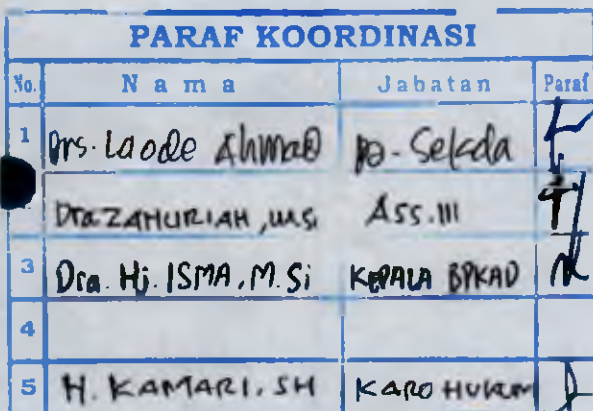 PARAF KOORDINASI
No. Nama Jabatan Paraf
1 Drs. Laode Ahmad Sekda
Dra ZAHURIAH, M.Si Ass. III
3 Dra. Hj. ISMA, M.Si KEPALA BPKAD
4
5 H. KAMARI, SH KARO HUKUM